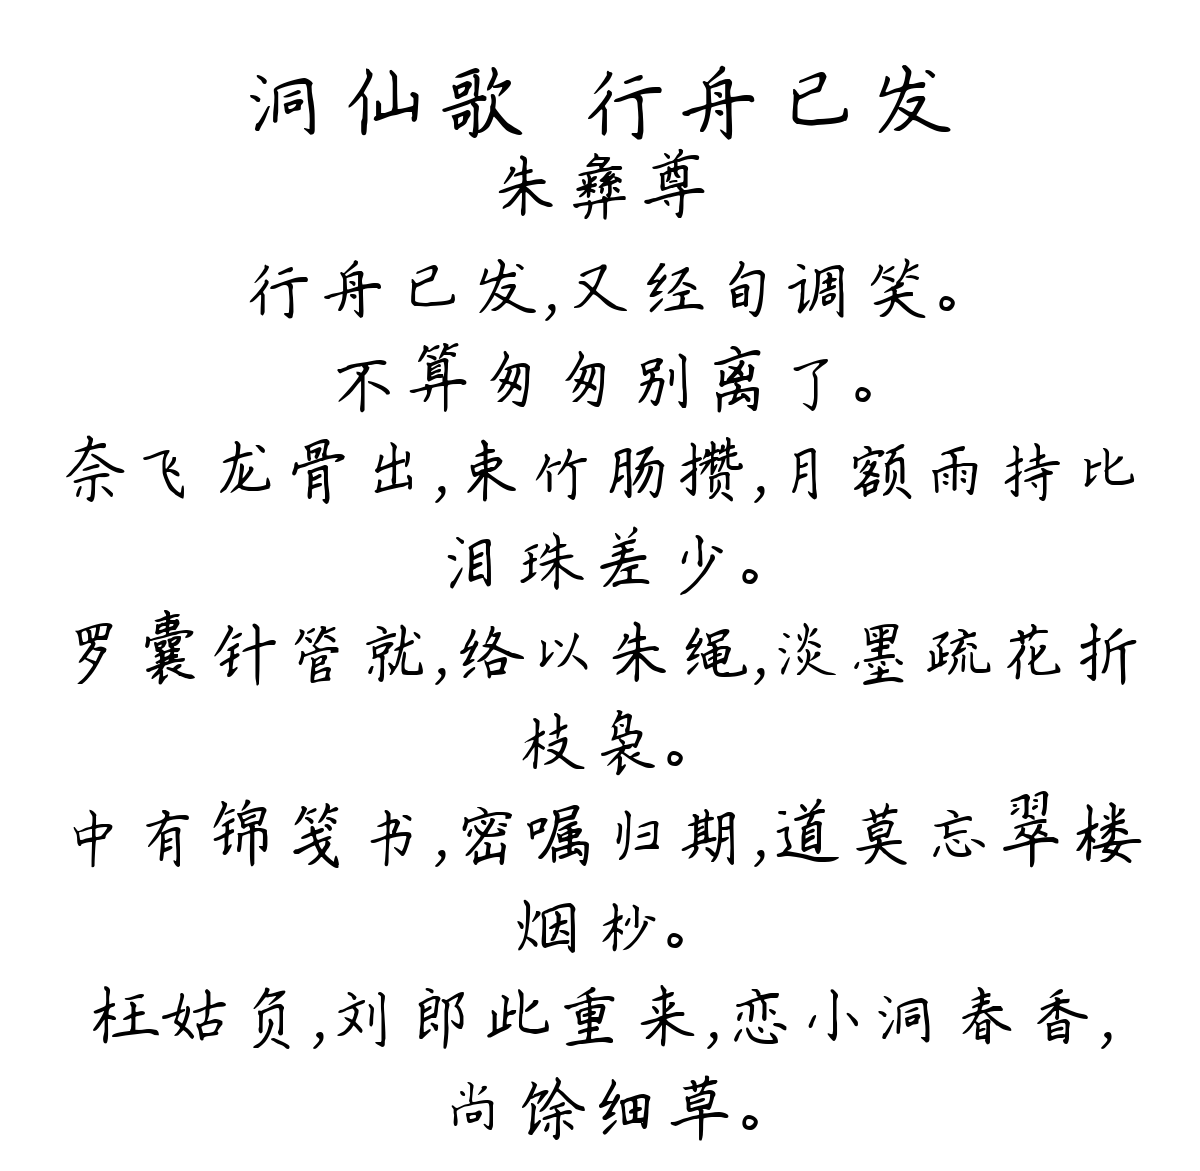 洞仙歌 行舟已发
朱彝尊
行舟已发,又经旬调笑。
不算匆匆别离了。
奈飞龙骨出,束竹肠攒,月额雨持比
泪珠差少。
罗囊针管就,络以朱绳,淡墨疏花折
枝袅。
中有锦笺书,密嘱归期,道莫忘翠楼
烟杪。
枉姑负,刘郎此重来,恋小洞春香,
尚馀细草。